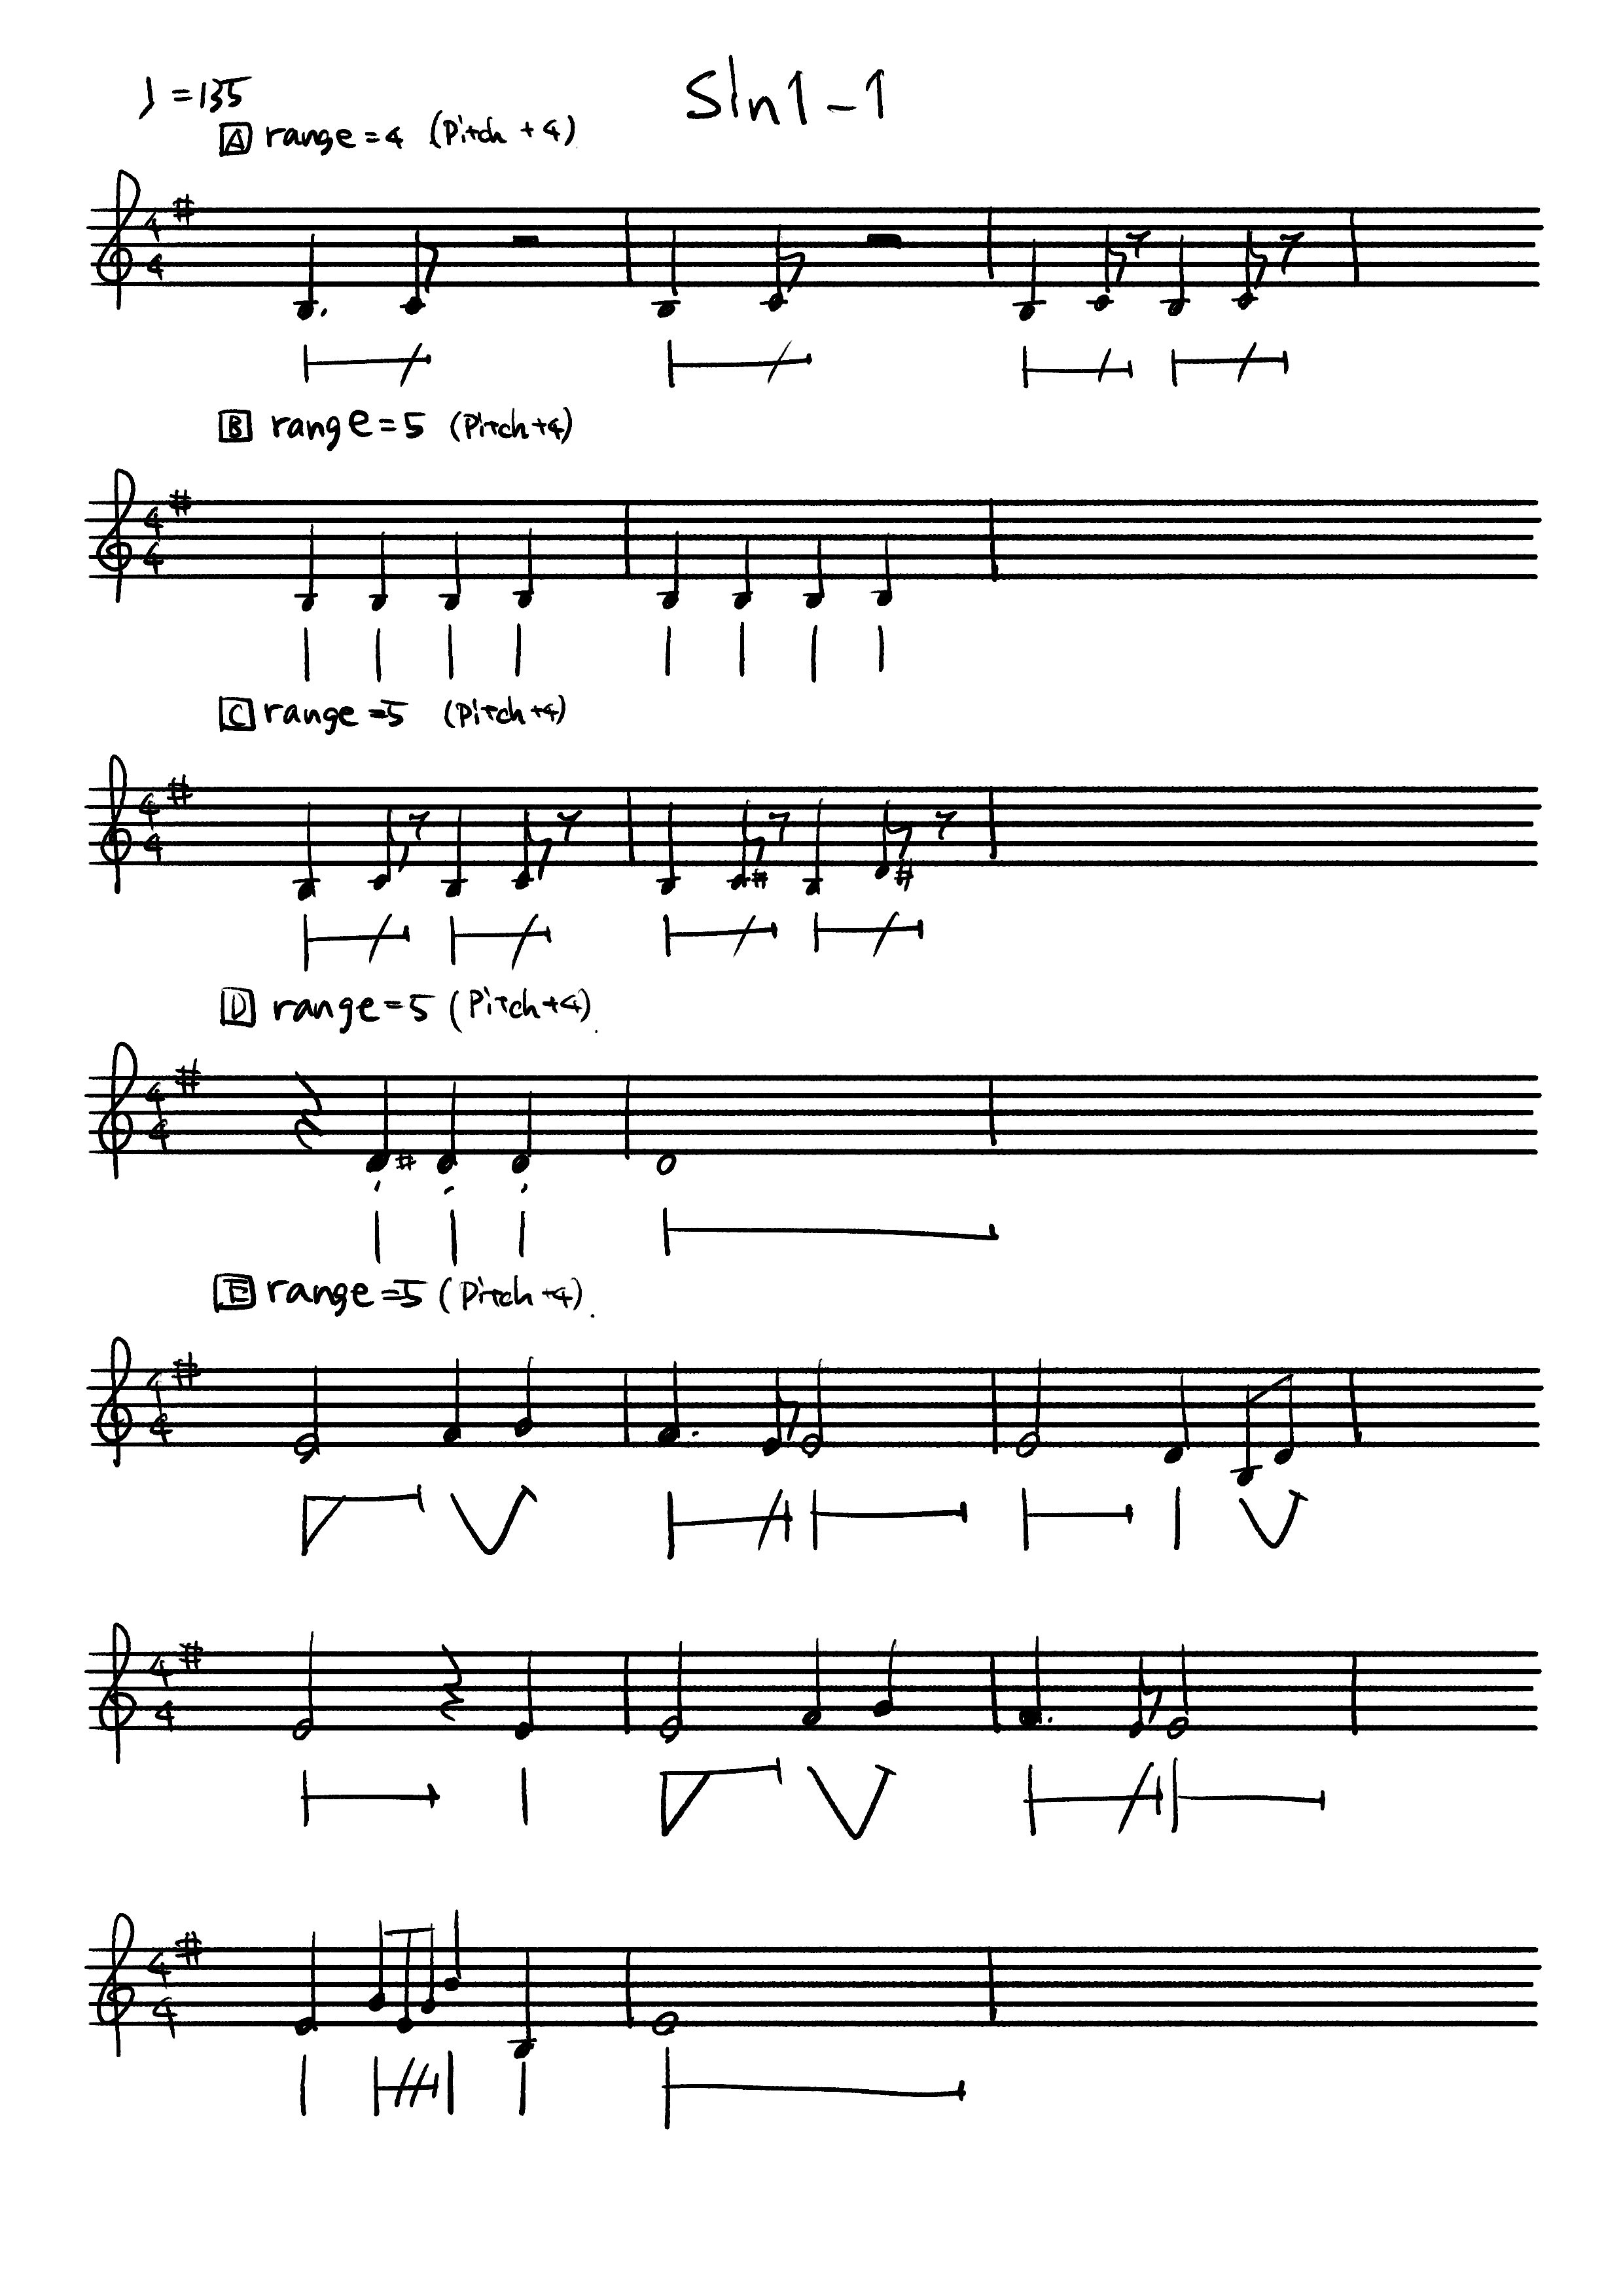 ♩=135
Sln1-1
A range=4 (Pitch +4)
4
4
B range=5 (Pitch+4)
4
4
C range=5 (Pitch+4)
4
4
D range=5 (Pitch+4)
4
4
E range=5 (Pitch+4)
4
4
4
4
4
4